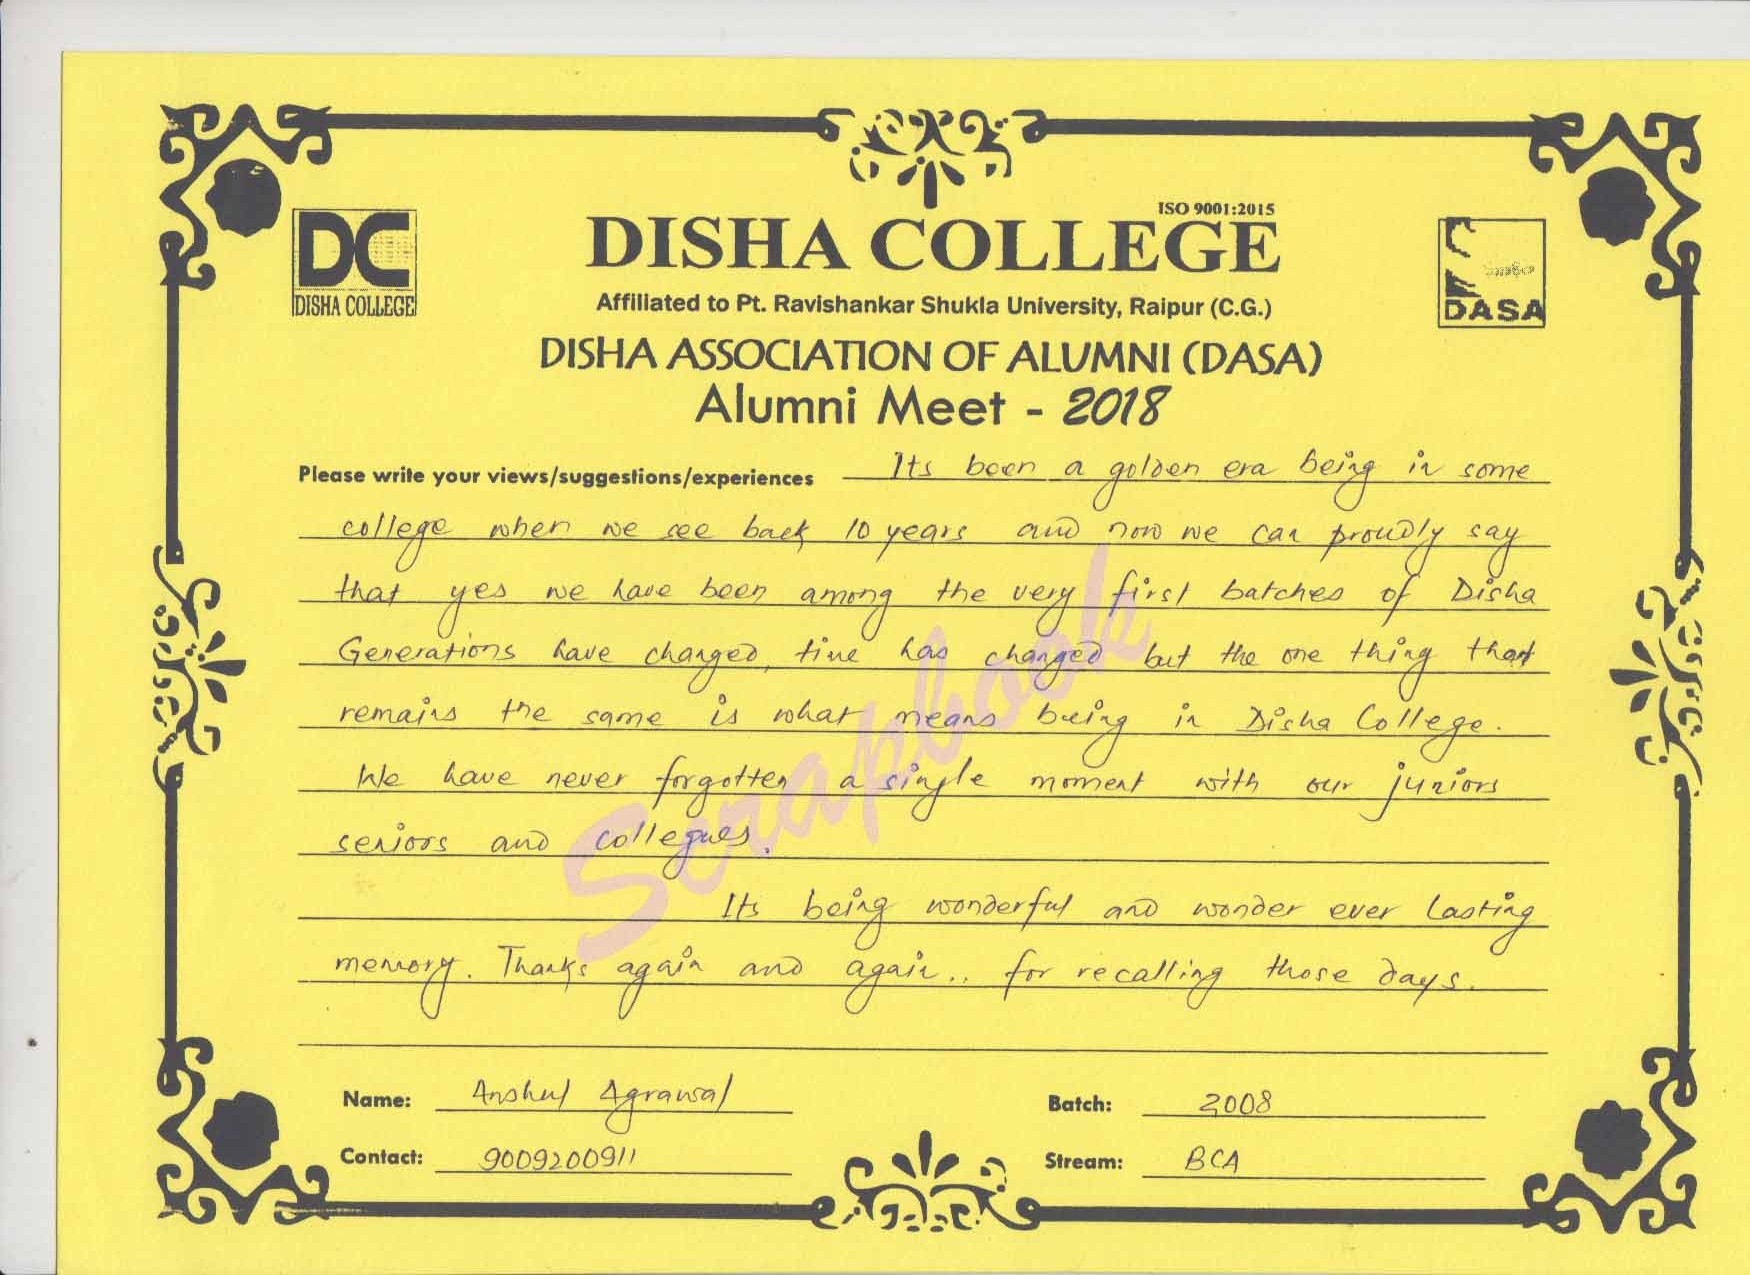 ISO 9001:2015
DC
DISHA COLLEGE
DISHA COLLEGE
DASA
Affiliated to Pt. Ravishankar Shukla University, Raipur (C.G.)
DISHA ASSOCIATION OF ALUMNI (DASA)
Alumni Meet - 2018
Please write your views/suggestions/experiences Its been a golden era being in some
college when we see back 10 years and now we can proudly say
that yes we have been among the very first batches of Disha
Generations have changed, time has changed but the one thing that
remains the same is what means being in Disha College.
We have never forgotten a single moment with our juniors
seniors and collegues.
Its being wonderful and wonder ever lasting
memory. Thanks again and again.. for recalling those days.
Scrapbook
Name: Anshul Agrawal Batch: 2008
Contact: 9009200911 Stream: BCA